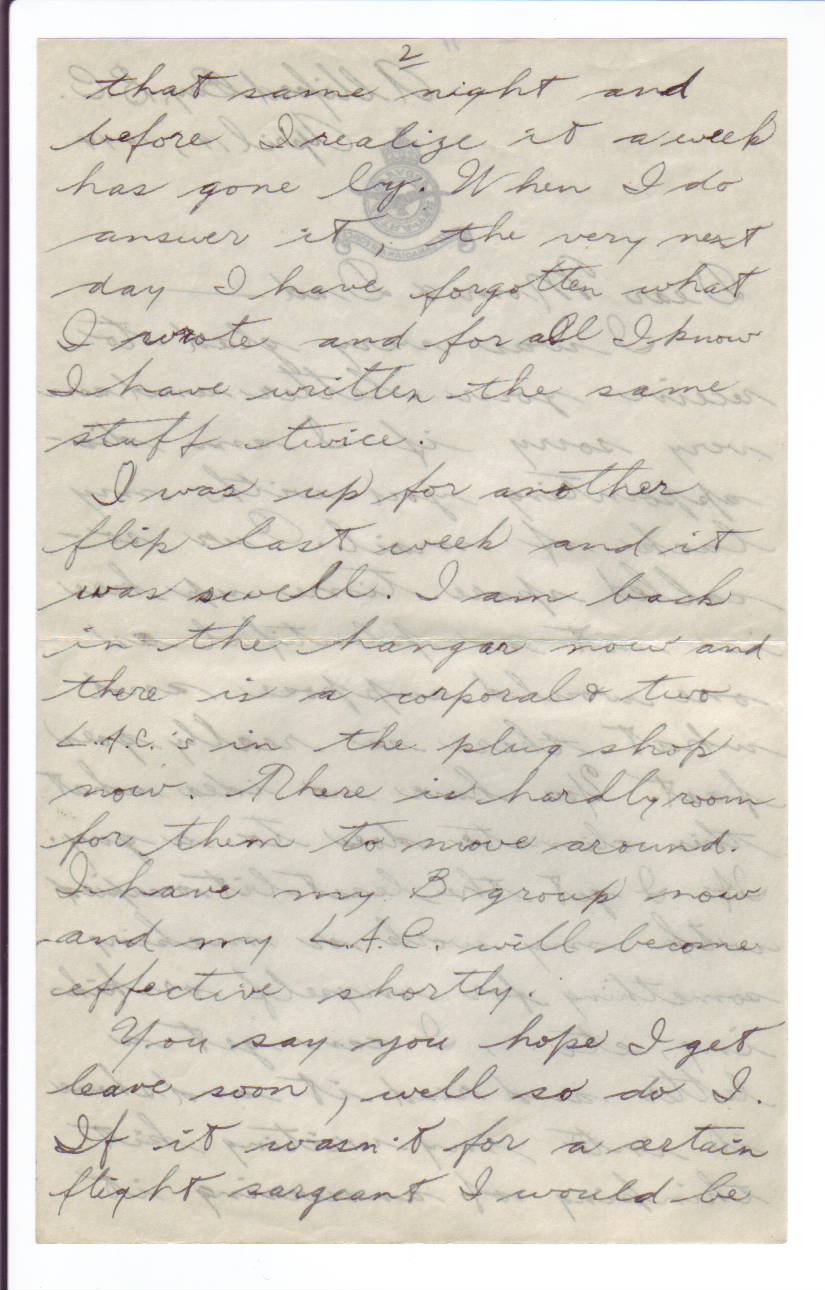 2
that same night and
before I realize it a week
has gone by. When I do
answer it, the very next
day I have forgotten what
I wrote and for all I know
I have written the same
stuff twice.
I was up for another
flip last week and it
was swell. I am back
in the hangar now and
there is a corporal & two
L.A.C.'s in the plug shop
now. There is hardly room
for them to move around.
I have my B group now
and my L.A.C. will become
effective shortly.
You say you hope I get
leave soon, well so do I.
If it wasn't for a certain
flight sargeant I would be